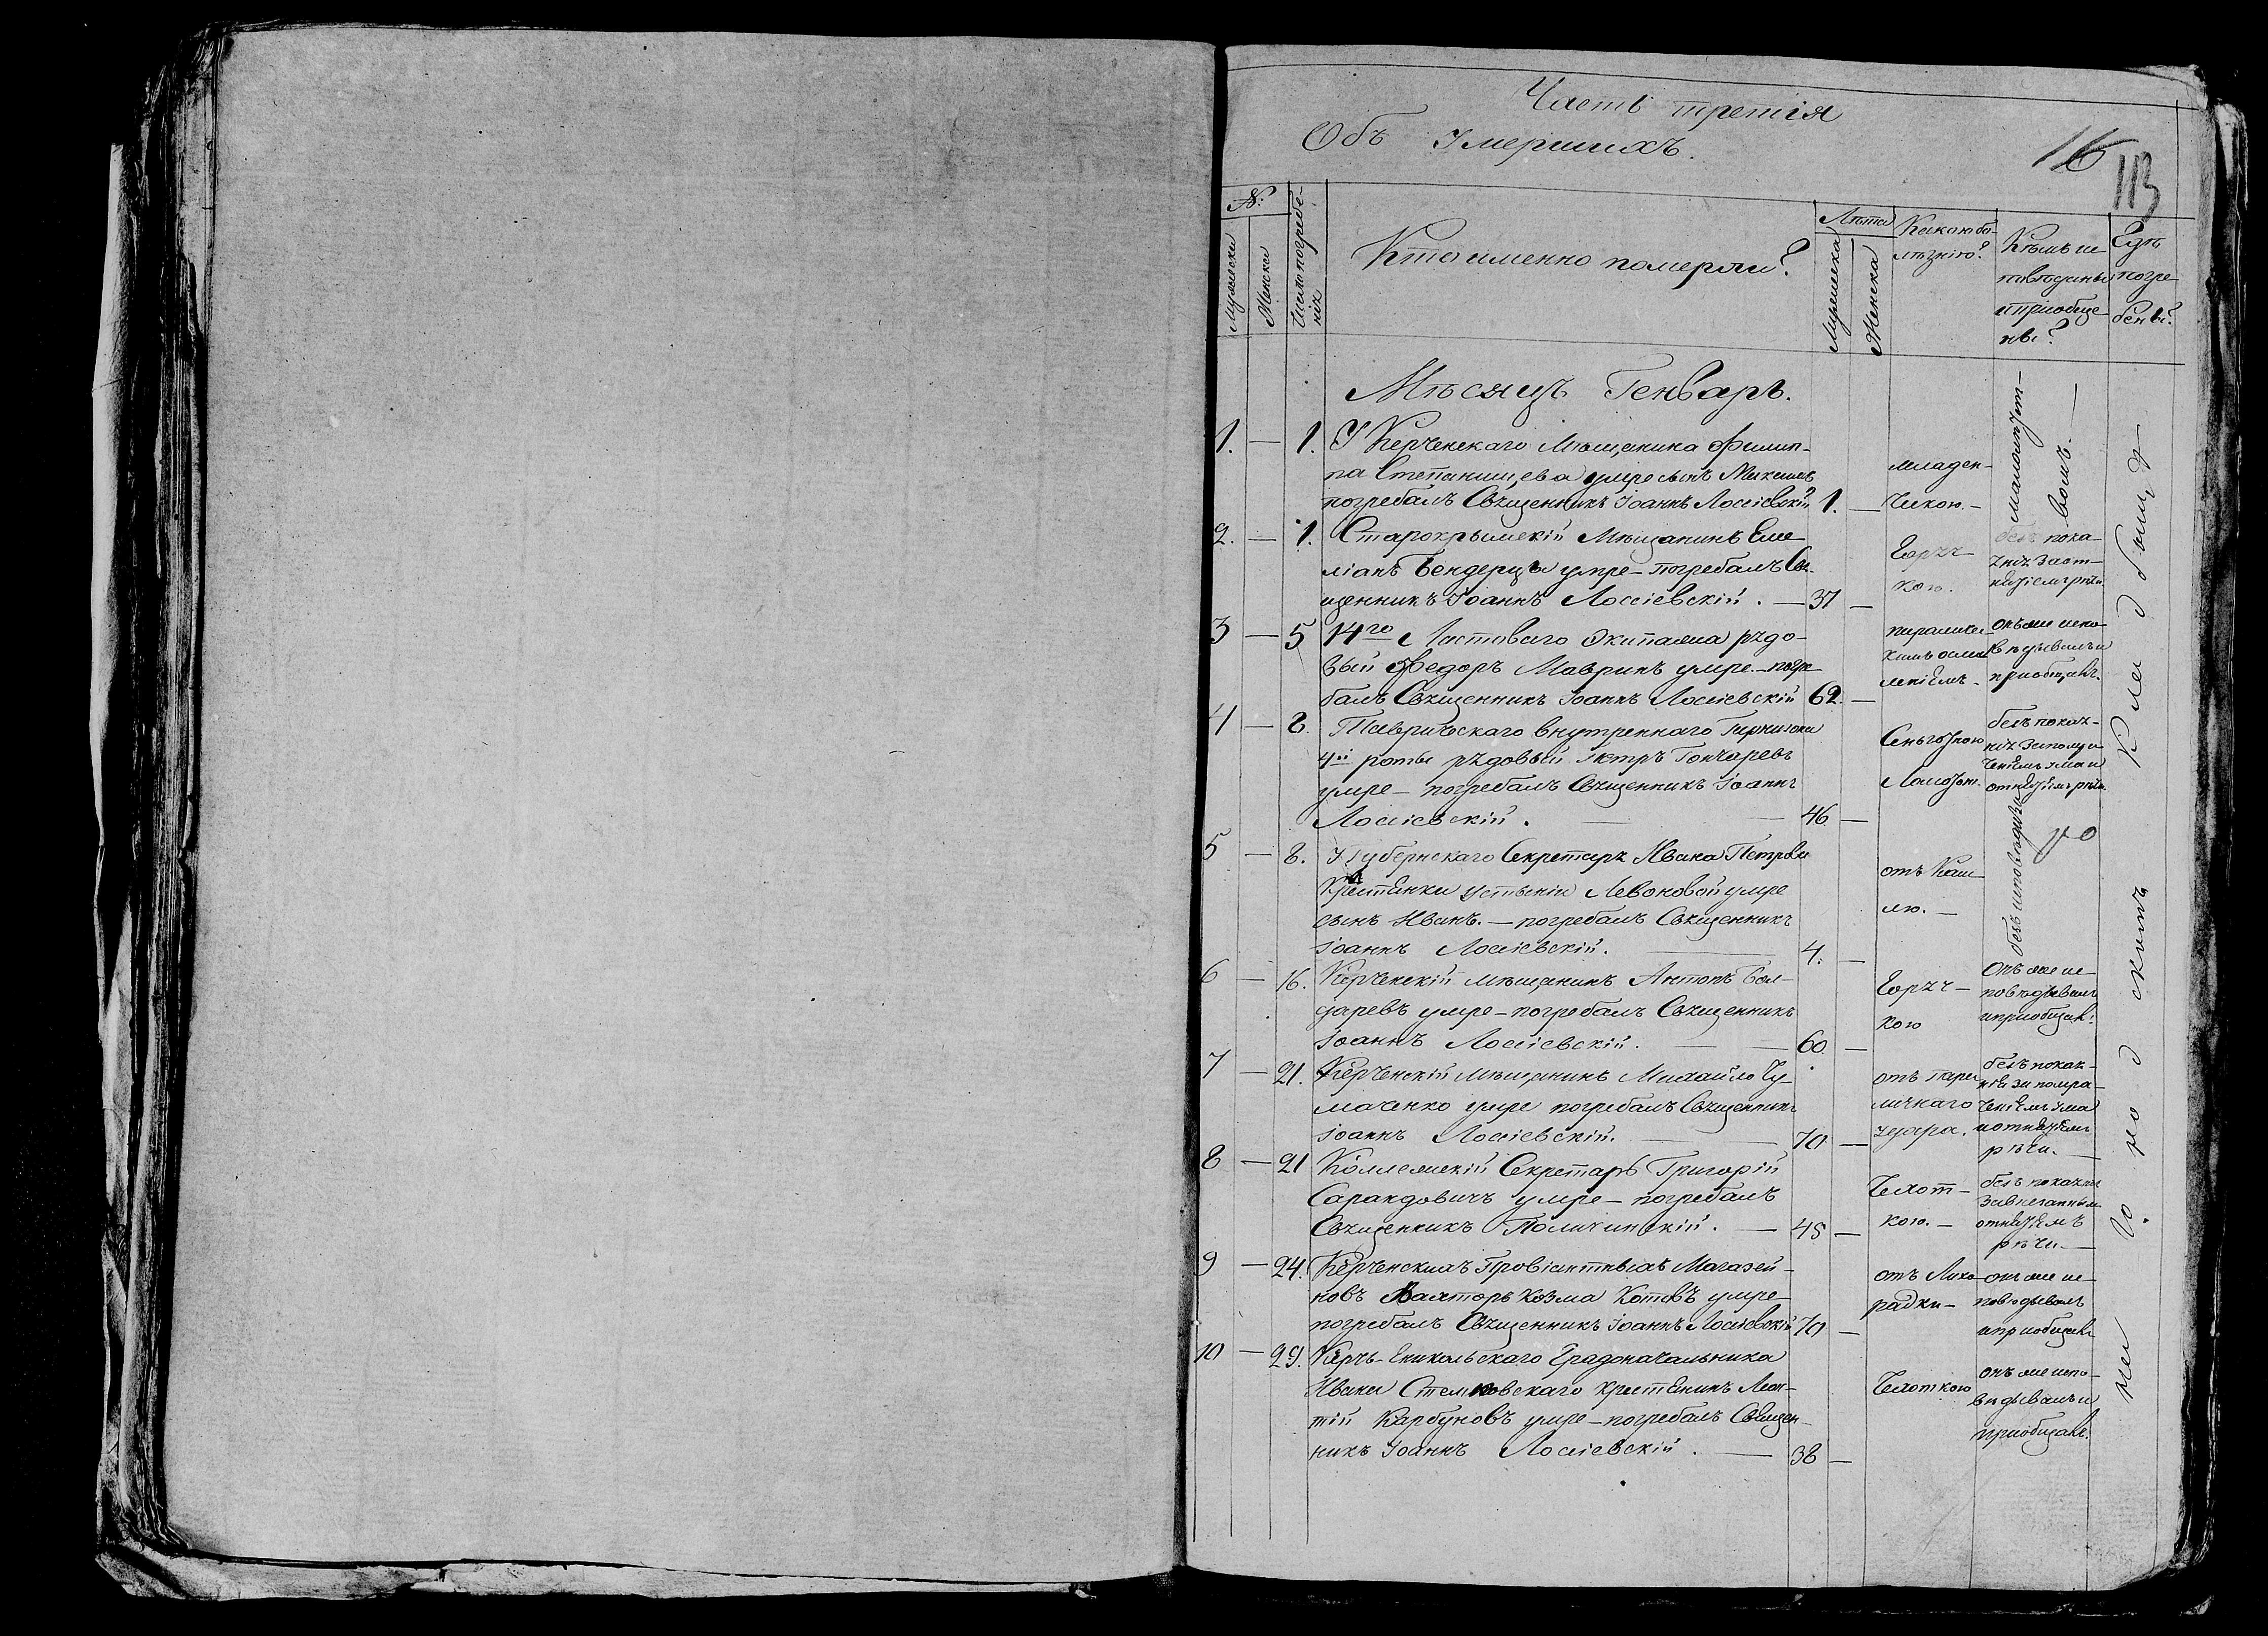 Часть третія
Объ Умершихъ.
16
113
№:
Мужеска
Женска
Число погребе-
нія
Кто именно померли?
Лѣта
Мужеска
Женска
Какою бо-
лѣзнію?
Кѣмъ ис-
повѣданы
и пріобще-
ны?
Гдѣ
погре-
бены?
Мѣсяцъ Генварь.
1. — 1. У Керченскаго Мѣщанина Филип-
па умре сынъ
погребалъ Священникъ Іоаннъ Лоссіевскій 1. —
младен-
ческою. —
малолѣт-
вомъ. —
2. — 1. Старокрымскій Мѣщанинъ Еме-
ліанъ Бендерцъ умре — погребалъ Свя-
щенникъ Іоаннъ Лоссіевскій. — 37 —
Горяч-
кою.
безъ пока-
3 — 5 14го Ластоваго Экипажа рядо-
вый Федоръ Мавринъ умре. — погре-
балъ Священникъ Іоаннъ Лоссіевскій 62. —
онъ же испо-
вѣдывалъ и
пріобщавъ.
4 — 8. Таврическаго внутренняго Гарнизона
4й роты рядовый Петръ Гончаревъ
умре — погребалъ Священникъ Іоаннъ
Лоссіевскій. — 46 —
безъ показ-
5 — 8. У Губернскаго Секретаря Ивана Петрова
Крестьянки Устьиніи Левоновой умре
сынъ Иванъ. — погребалъ Священникъ
Іоаннъ Лоссіевскій. — 4. —
отъ Каш-
лю. —
безъ исповѣди
6 — 16. Керченскій мѣщанинъ Антонъ Бон-
даревъ умре — погребалъ Священникъ
Іоаннъ Лоссіевскій. — 60 —
Горяч-
кою
Онъ же ис-
повѣдывалъ
и пріобщавъ.
7 — 21. Керченскій Мѣщанинъ Михайло Чу-
маченко умре погребалъ Священникъ
Іоаннъ Лоссіевскій. — 70 —
отъ пара-
личнаго
удара.
безъ показ-
нія за помра-
ченіемъ ума
и отнятіемъ
рѣчи. —
8 — 21 Коллежскій Секретарь Григорій
Сарандовичъ умре — погребалъ
Священникъ — 45 —
Чахот-
кою. —
отнятіемъ
рѣчи. —
9 — 24. Керченскихъ Провіантныхъ Магазей-
новъ Вахторъ Козма Котовъ умре
погребалъ Священникъ Іоаннъ Лоссіевскій 70 —
отъ Лихо-
радки —
онъ же ис-
повѣдывалъ
и пріобщавъ
10 — 29. Керчь-Еникольскаго Градоначальника
Ивана Стемповскаго крестьянинъ Леон-
тій Карбуновъ умре — погребалъ Священ-
никъ Іоаннъ Лоссіевскій. — 38 —
Чахоткою
онъ же испо-
вѣдывалъ и
пріобщавъ.
на Городскомъ Кладбищѣ